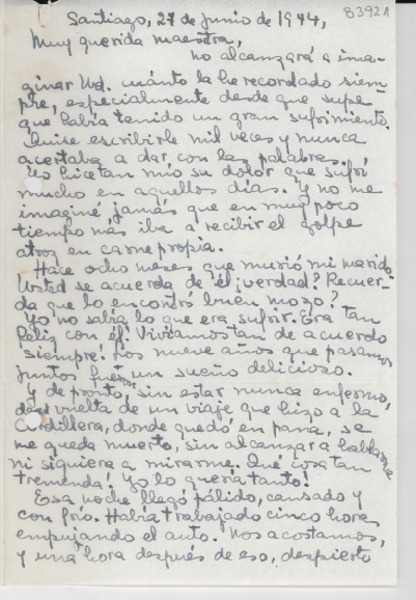 83921
Santiago, 27 de junio de 1944,
Muy querida maestra,
no alcanzará a ima-
ginar Ud. cuánto la he recordado siem-
pre, especialmente desde que supe
que había tenido un gran sufrimiento.
Quise escribirle mil veces y nunca
acertaba a dar con las palabras.
Yo hice tan mío su dolor que sufrí
mucho en aquellos días. Y no me
imaginé jamás que en muy poco
tiempo más iba a recibir el golpe
atroz en carne propia.
Hace ocho meses que murió mi marido.
Usted se acuerda de él ¿verdad? ¿Recuer-
da que lo encontró buen mozo?
Yo no sabía lo que era sufrir. Era tan
feliz con él. Vivíamos tan de acuerdo
siempre. Los nueve años que pasamos
juntos fueron un sueño delicioso.
Y de pronto, sin estar nunca enfermo,
de vuelta de un viaje que hizo a la
Cordillera, donde quedó en pana, se
me queda muerto, sin alcanzar a hablarme
ni siquiera a mirarme. Qué cosa tan
tremenda! Yo lo quería tanto!
Esa noche llegó pálido, cansado y
con frío. Había trabajado cinco horas
empujando el auto. Nos acostamos,
y una hora después de eso, despierto